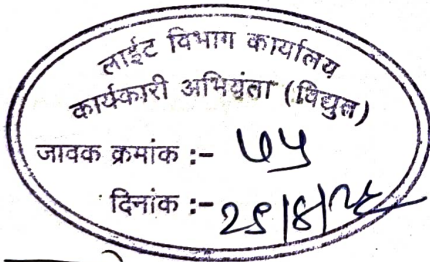 लाईट विभाग कार्यालय
कार्यकारी अभियंता (विद्युत)
जावक क्रमांक :- ७५
दिनांक :-